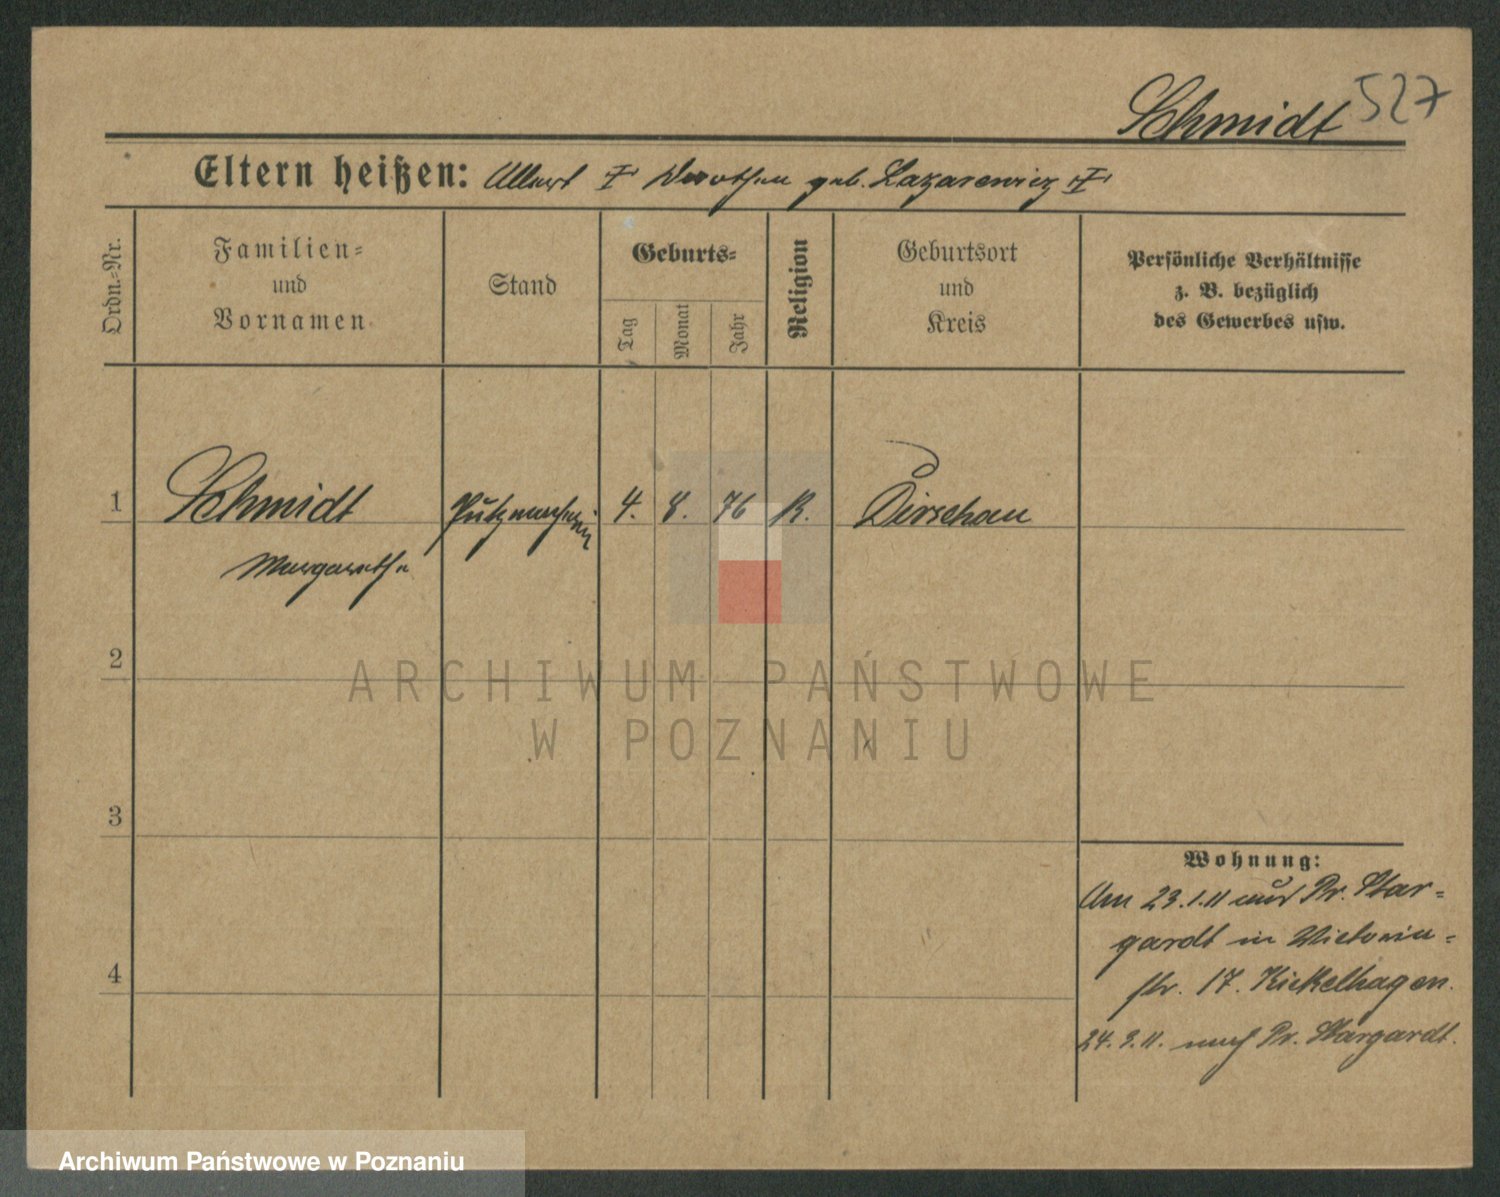 Schmidt 527
Eltern heißen: Albert † Dorothea geb. Lazarewicz †
Ordn.-Nr.
Familien-
und
Vornamen
Stand
Geburts-
Tag
Monat
Jahr
Religion
Geburtsort
und
Kreis
Persönliche Verhältnisse
z. B. bezüglich
des Gewerbes usw.
1 Schmidt Putzmacherin 4. 8. 76 K. Dirschau
Margarethe
2
3
4
Wohnung:
Am 23.1.11 aus Pr. Star=
gardt in Victoria=
str. 17. Kickelhagen.
24.9.11. nach Pr. Stargardt.
ARCHIWUM PAŃSTWOWE
W POZNANIU
Archiwum Państwowe w Poznaniu